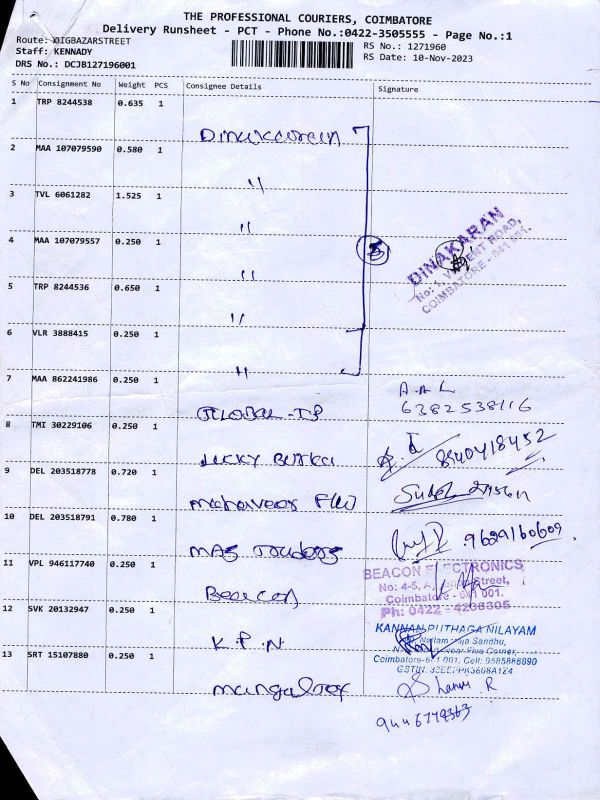 THE PROFESSIONAL COURIERS, COIMBATORE
Delivery Runsheet - PCT - Phone No.:0422-3505555 - Page No.:1
Route: BIGBAZARSTREET
Staff: KENNADY
DRS No.: DCJB127196001
RS No.: 1271960
RS Date: 10-Nov-2023
S No Consignment No Weight PCS Consignee Details Signature
1 TRP 8244538 0.635 1
Dinakaran
2 MAA 107079590 0.580 1
"
3 TVL 6061282 1.525 1
"
4 MAA 107079557 0.250 1
"
5 TRP 8244536 0.650 1
"
6 VLR 3888415 0.250 1
"
DINAKARAN
COIMBATORE - 641 001.
7 MAA 862241986 0.250 1
GLOBAL
6382538116
8 TMI 30229106 0.250 1
LUCKY
8940418452
9 DEL 203518778 0.720 1
10 DEL 203518791 0.780 1
MAS Traders
9629160609
11 VPL 946117740 0.250 1
Beacon
BEACON ELECTRONICS
No: 4-5, Street,
Coimbatore - 641 001.
Ph: 0422 - 4208305
12 SVK 20132947 0.250 1
K.P.N
KANNAN PUTHAGA NILAYAM
Sandhu,
Near Five Corner,
Coimbatore-641 001, Cell: 9585888090
13 SRT 15107880 0.250 1
R